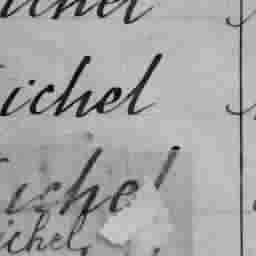 ichel
ichel
ichel
ichel